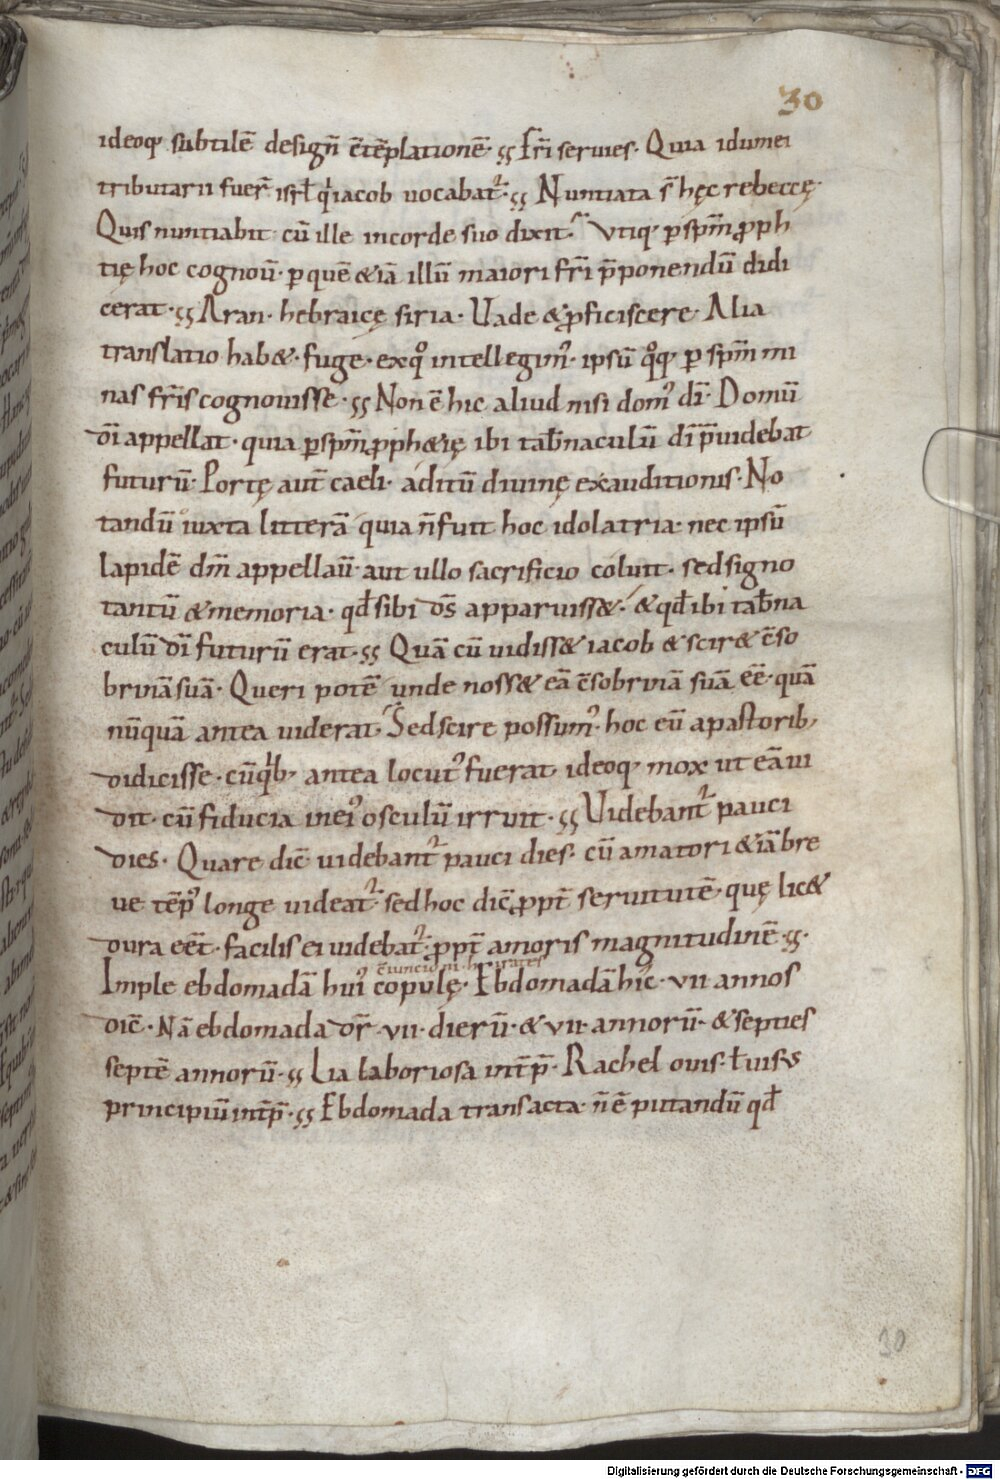 30
ideoq; subtilē desigñ c̄tēplationē· ꝯꝯ Fr̄i seruies· Quia idumei
tributarii fuer̄ isrł qͥ iacob uocabat᷑· ꝯꝯ Nuntiata s̄ hęc rebeccę·
Quis nuntiabit cū ille incorde suo dixit· Vtiq; ꝑ sp̄m ꝓph
tię hoc cognoū· ꝑ quē & iā illū maiori fr̄i p̄ponendū didi
cerat· ꝯꝯ Aran· hebraicę siria· Uade & ꝓficiscere· Alia
translatio hab&· fuge· exqͦ intellegimꝰ· ipsū qͦq; ꝑ sp̄m mi
nas fr̄is cognouisse· ꝯꝯ Non ē hic aliud nisi domꝰ dī· Domū
dī appellat· quia ꝑ sp̄m ꝓph&ię ibi tab̄naculū dī p̄uidebat
futurū· Portę aut̄ caeli· aditū diuinę exauditionis· No
tandū iuxta litterā quia n̄ fuit hoc idolatria· nec ipsū
lapidē dm̄ appellaū· aut ullo sacrificio coluit· sed signo
tantū & memoria· qđ sibi ds̄ apparuiss&· & qđ ibi tab̄na
culū dī futurū erat· ꝯꝯ Quā cū uidiss& iacob & scir& c̄so
brinā suā· Queri potē unde noss& eā c̄sobrinā suā ēē· quā
nūquā antea uiderat· Sed scire possumꝰ· hoc eū a pastorib;
didicisse· cū qͥb; antea locutꝰ fuerat· ideoq; mox ut eā ui
dit· cū fiducia in eiꝰ osculū irruit· ꝯꝯ Uidebant᷑ pauci
dies· Quare dic̄ uidebant᷑ pauci dies· cū amatori & iā bre
ue tēpꝰ longe uideat᷑· sed hoc dic̄ ꝓpt̄ seruitutē· quę lic&
dura eēt· facilis ei uidebat᷑· ꝓpt̄ amoris magnitudinē· ꝯꝯ·
Imple ebdomadā huiꝰ copulę· Ebdomadā hic· vii annos
dic̄· Nā ebdomada dr̄ vii· dierū· & vii· annorū· & septies
septē annorū· ꝯꝯ Lia laboriosa int̄p̄· Rachel ouis· ł uisus
principiū int̄p̄· ꝯꝯ Ebdomada transacta· n̄ ē putandū qđ
30
Digitalisierung gefördert durch die Deutsche Forschungsgemeinschaft - DFG